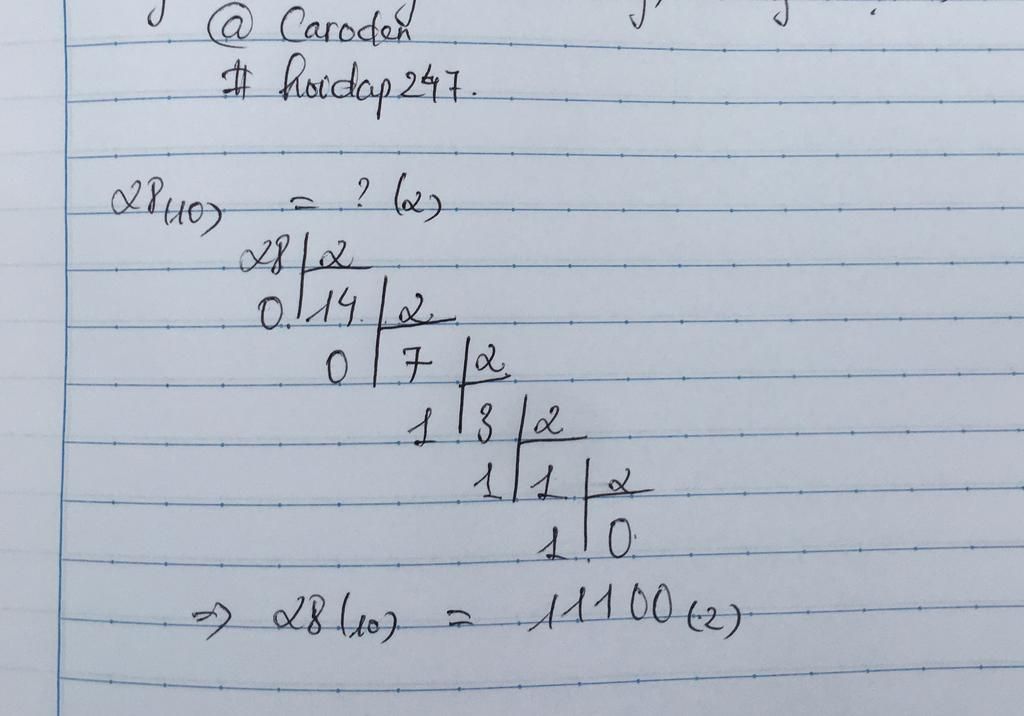 @ Caroden
# hoidap247.
28(10) = ? (2)
28 2
0. 14. 2
0 7 2
1 3 2
1 1 2
1 0.
=> 28(10) = 11100(2)